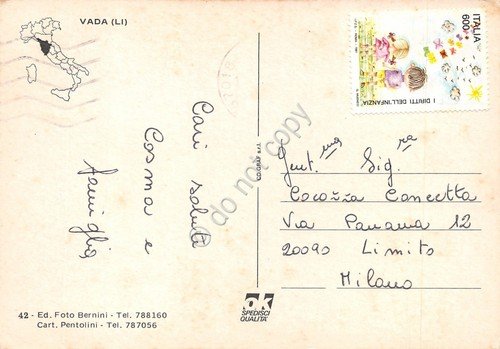 VADA (LI)
Cari saluti
Cosma e
famiglia
42 - Ed. Foto Bernini - Tel. 788160
Cart. Pentolini - Tel. 787056
OK
SPEDISCI
QUALITÀ
do not copy
ITALIA
600
I DIRITTI DELL'INFANZIA
Gent.ma Sig.ra
Cocozza Concetta
Via Panama 12
20090 Limito
Milano